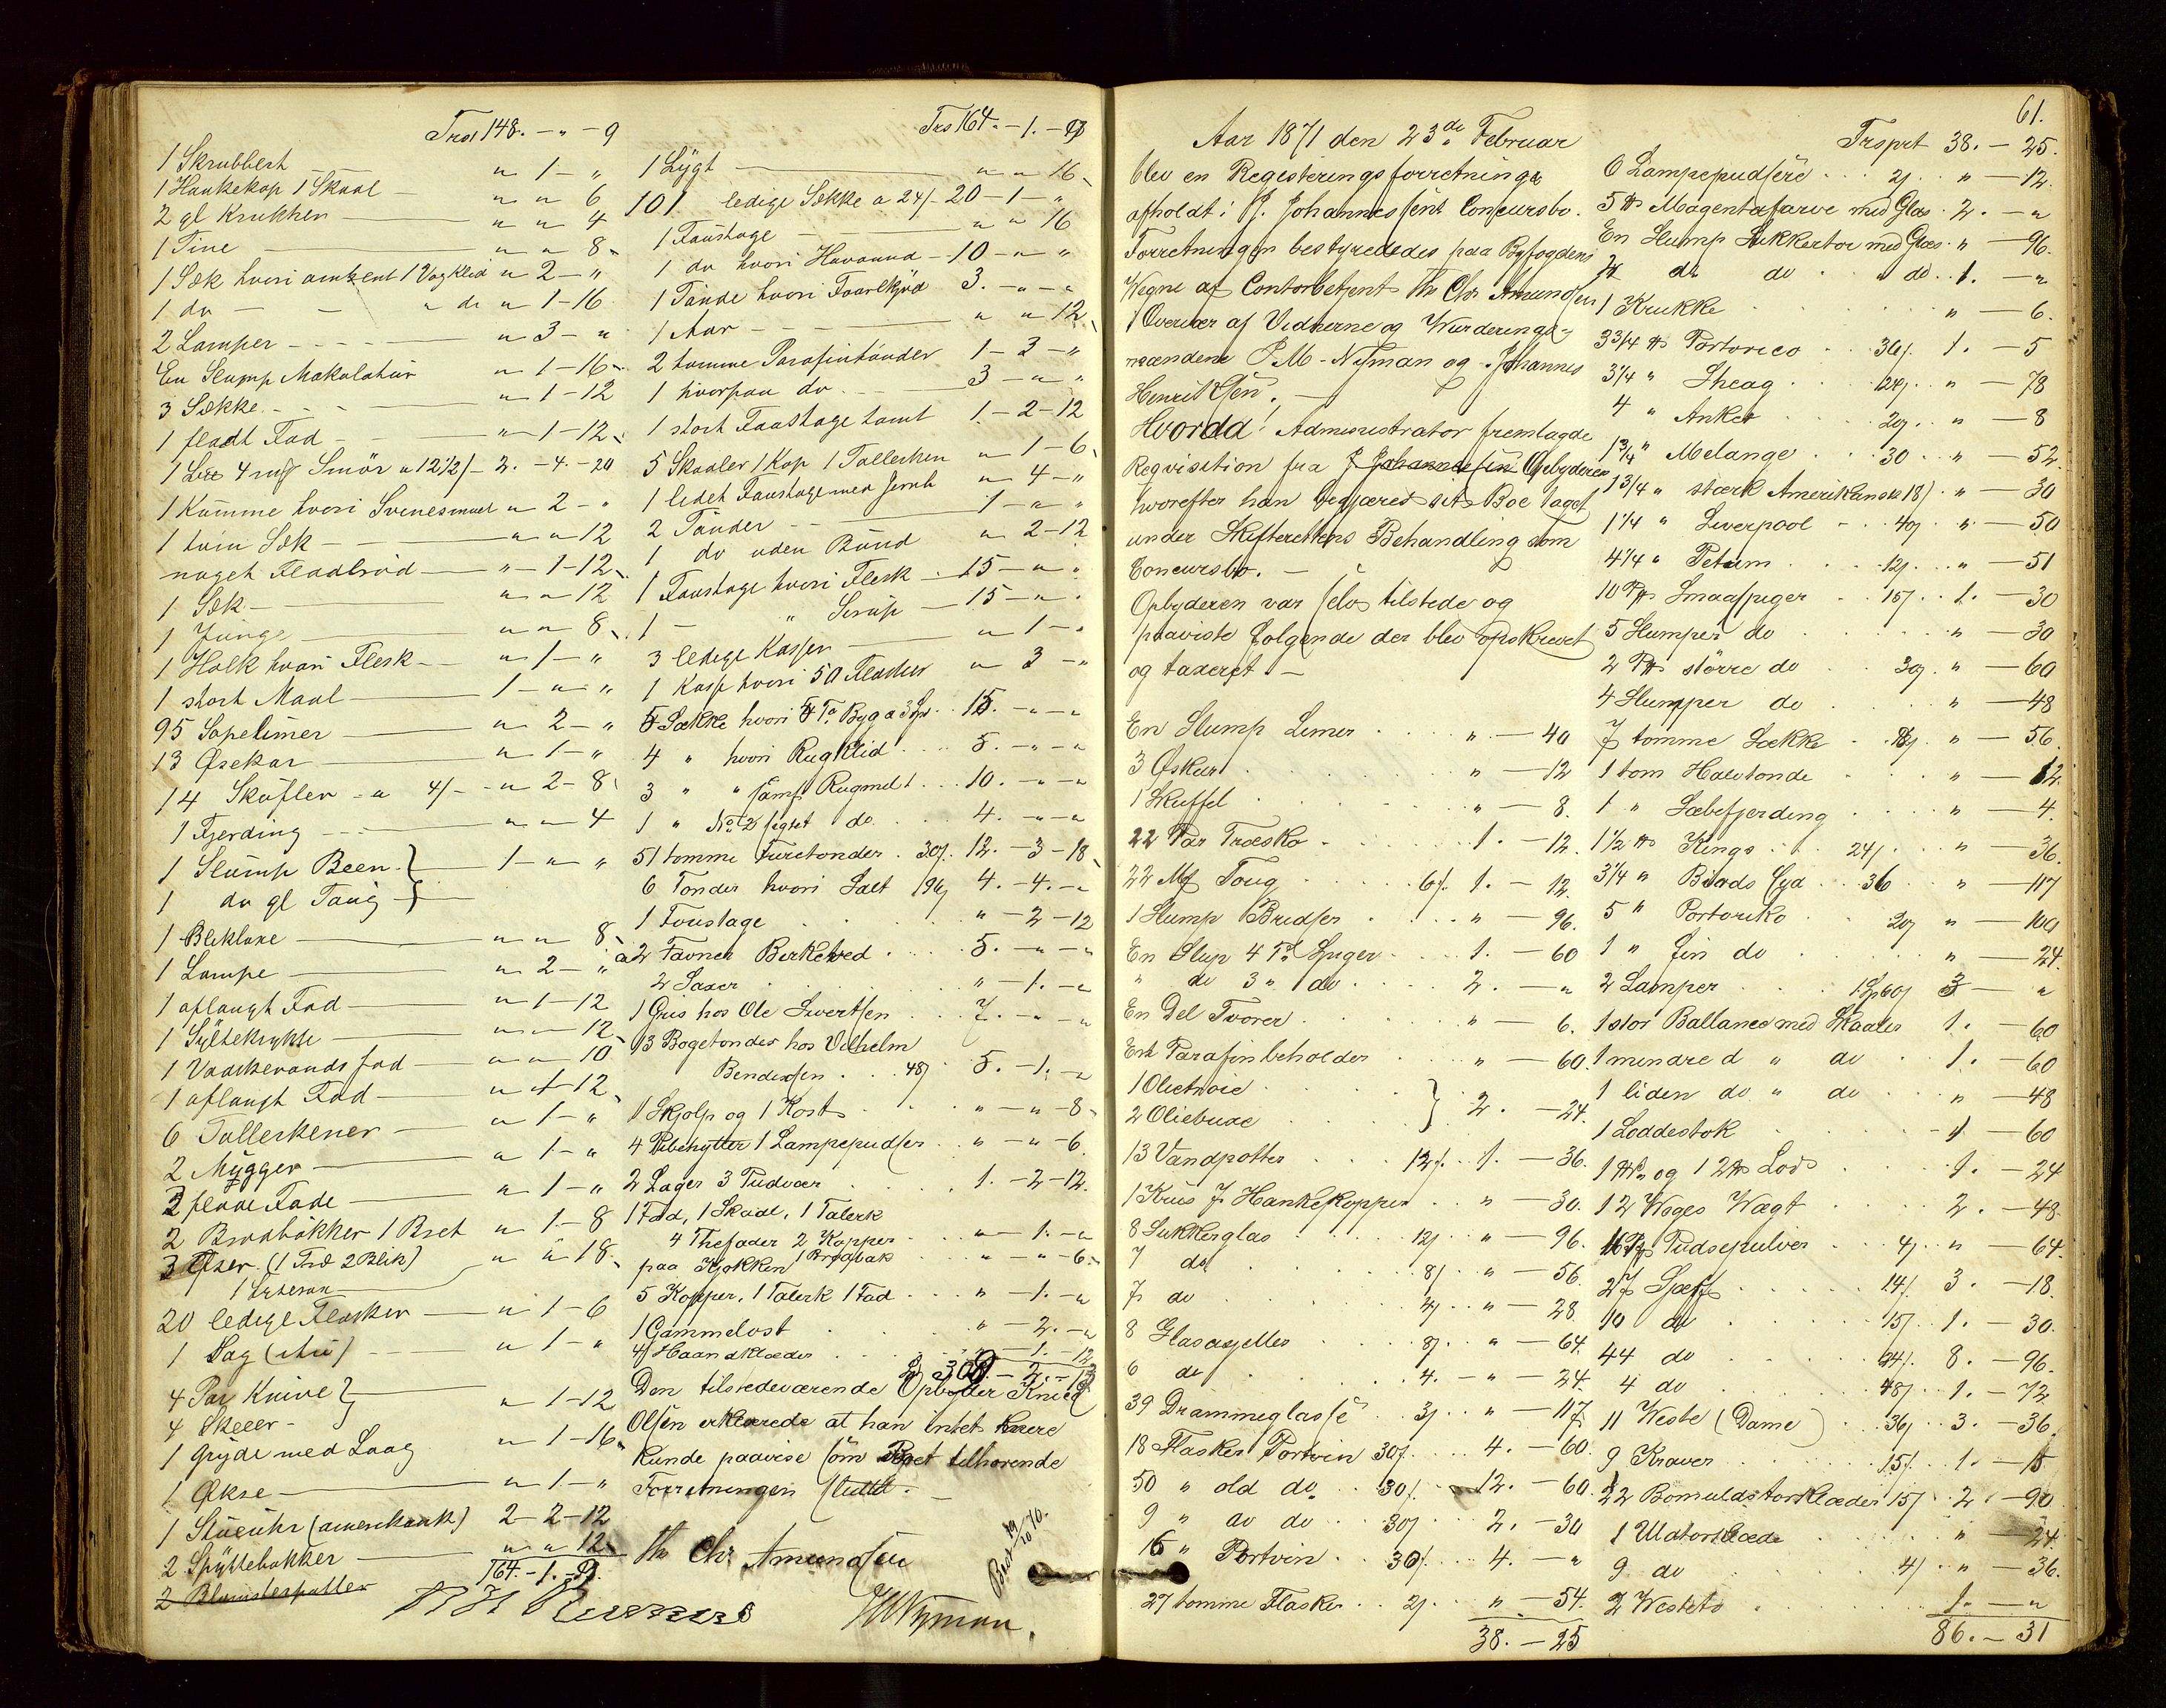 Trsp 148. - " - 9
1 Skrubbert " 1 - "
1 Hankekop 1 Skaal " " 6
2 gl Krukker " " 4
1 Tine " " 8
1 Sæk hvori omtrent 1 Vog Klid " 2 - "
1 do - - " do " 1 - 16
2 Lamper " 3 - "
En Slump Makulatur " 1 - 16
3 Sække " 1 - 12
1 fladt Fad " 1 - 12
1 4 Smör a 12½/ 2. - 4. - 20
1 Kumme hvori Svinesmul " 2 - "
1 tom Sæk " " 12
noget Fladbröd " 1 - 12
1 Sæk " " 12
1 Junge " " 8
1 Holk hvori Flesk " 1 - "
1 stort Maal 1 - " "
95 Sopelimer " 2 - "
13 Øsekar " 1 - "
14 Skufler a 4/ " 2 - 8
1 Fjerding " " 4
1 Slump Been } 1 - " "
1 do gl Taug }
1 Blikboxe " " 8
1 Lampe " 2 - "
1 aflangt Fad " 1 - 12
1 Syltekrukke " " 12
1 Vaskevands fad " " 10
1 aflangt Fad " 1 - 12
6 Tallerkener " 1 - "
2 Mugger " 1 - "
3 flade Fade " 1 - "
2 Brödbakker 1 Bret " 1 - 8
3 Øser (1 Træ 2 Blik) " " 18
20 ledige Flasker " 1 - 6
1 Sag " 1 - "
4 Par Knive } " 1 - 12
4 Skeer }
1 Gryde med Laag " 1 - 16
1 Økse " 1 - "
1 Stueuhr (amerikansk) 2 - 2 - 12
2 Spyttebakker " " 12
2 Blomsterpotter
164. - 1. - 9.
Trs 164. - 1. - 9
1 Lygt " " 16
101 ledige Sække a 24/ 20 - 1 - "
1 Faustage " " 16
1 do hvori Havannd 10 - " "
1 Tønde hvori Faarekjød 3. - " - "
1 Aar " " 12
2 tomme Parafintønder 1 - 3 - "
1 hvorpaa do 3 - " "
1 stort Faustage tomt 1 - 2 - 12
5 Skaaler 1 Kop 1 Tallerken " 1 - 6
1 ledet Faustage med Jernb " 4 - "
2 Tønder 1 - " "
1 do uden Bund " 2 - 12
1 Faustage hvori Flesk 15 - " "
1 - " Sirup 15 - " "
3 ledige Kasser " 1 - "
1 Kasse hvori 50 Flasker " 3 - "
5 Sække hvori 5 Tr Byg a 3 Sp 15. - " - "
4 " hvori Rugklid 5. - " - "
3 " " sam Rugmel 10. - " - "
1 " No 2 sigtet do 4. - " - "
51 tomme Turetonder 30/ 12. - 3 - 18
6 Tønder hvori Salt 4. - 4. - "
1 Foustage " - 2 - 12
2 Favner Birkeved 5. - " - "
2 Saxer " - 1. - "
1 Gris hos Ole Sivertsen 7. - " - "
13 Bogetonder hos Vilhelm
Bendixsen 48/ 5. - 1. - "
1 Skjolp og 1 Kost " - " - 8
4 Pibehytter 1 Lampepudser " - " - 6
2 Lager 3 Pudvar 1. - 2 - 12.
1 Fad, 1 Skaal, 1 Talerk
4 Thefader 2 Kopper " - 1. - "
paa Kjøkken 1 Brødbak " - " - 6
5 Kopper, 1 Talerk 1 Fad " - 1. - "
1 Gammelost " - 2. - "
4 Haandklæder " - 1. - 12
Den tilstedeværende Opbyder Knud
Olsen erklærede at han intet mere
kunde paavise som Boet tilhørende
Forretningen sluttet.
Th Chr Amundsen
JM Nyman
61.
Aar 1871 den 23de Februar
blev en Registeringsforretninge
afholdt i J. Johannessens Concursbo.
Forretningen bestyrededes paa Byfogdens
Vegne af Contorbetjent Th Chr Amundsen
i Overvær af Vidnerne og Wurderings-
mændene J M - Nyman og Johannes
Henriksen. -
Hvorda! Administrator fremlagde
Reqvisition fra J Johannessen Opbyderen
hvorefter han begjæred sit Boe taget
under Skifterettens Behandling som
Concursbo. -
Opbyderen var selv tilstede og
paaviste følgende der blev opskrevet
og taxeret. -
En Slump Limer " - 40
3 Øskar " - 12
1 Skuffel " - 8.
22 Par Træsko 1. - 12.
22 Mk Toug 6/. 1. - 12
1 Slump Bridser " - 96.
En Slup 4 Ts Spiger 1. - 60
" do 3 " do 2. - "
En Del Tvorer " - 6.
En Parafinbeholder " - 60.
1 Olietroie } 2. - 24.
2 Oliebuxe }
13 Vandpotter 12/. 1. - 36.
1 Krus 7 Hankekopper " - 30.
8 Sukkerglas 12/ " - 96.
7 do 8/ " - 56.
7 do 4/ " - 28
8 Glasasjetter 8/. " - 64.
6 do 4. - " - 24.
39 Drammeglasse 3/ " - 117
18 Flasker Portvin 30/. 4. - 60.
50 " old do 30/. 12. - 60.
9 " do do 30/ 2. - 30
16 " Portvin 30/. 4. - "
27 tomme Flasker 2/. " - 54.
38. - 25
Trsprt 38. - 25.
6 Lampepudsere 2/. " - 12.
5 ℔ Magentafarve med Glas 2. - "
En Slump Sukkertoi med Glas " - 96.
" do do " do 1. - "
1 Krukke " - 6.
3 3/4 ℔ Portorico 36/. 1. - 5
3 1/4 " Sheag 24/. " - 78
4 " Anker 2/. " - 8
1 3/4 " Melange 30 " - 52
1 3/4 " stærk Amerikansk 18/ " - 30
1 1/4 " Liverpool 40/ " - 50
4 1/4 " Petum 12/. " - 51
10 Smaaspiger 15/. 1. - 30
5 Slumper do " - 30
2 større do 30/. " - 60
4 Slumper do " - 48
7 tomme Sække 8/. " - 56.
1 tom Halvtonde " - 12.
1 " Sæbefjerding " - 4.
1 1/2 ℔ Kings 24/. " - 36.
3 1/4 " Blads Cya 36 " - 117
5 " Portoriko 20/ " - 100
1 " fin do " - 24.
2 Lamper 3 - "
1 stor Ballance med Skaaler 1. - 60
1 mindre d " do 1. - 60
1 liden do " do " - 48
1 Loddestok " - 60
1 ℔ og 1 2 ℔ Lods 1. - 24
1 2 Woges Vægt 2. - 48
16 Pk Pudsepulver 4/. " - 64.
27 Sjerf 14/. 3. - 18.
10 do 15/. 1. - 30.
44 do 8. - 96.
4 do 48/. 1. - 72
11 Weste (Dame) 36/. 3. - 36.
9 Kraver 15/. 1. - 15
22 Bomuldstørklæder 15/ 2. - 90.
1 Uldtørklæde " - 24.
9 do 4/. " - 36.
2 Westets 1. - "
86. - 31